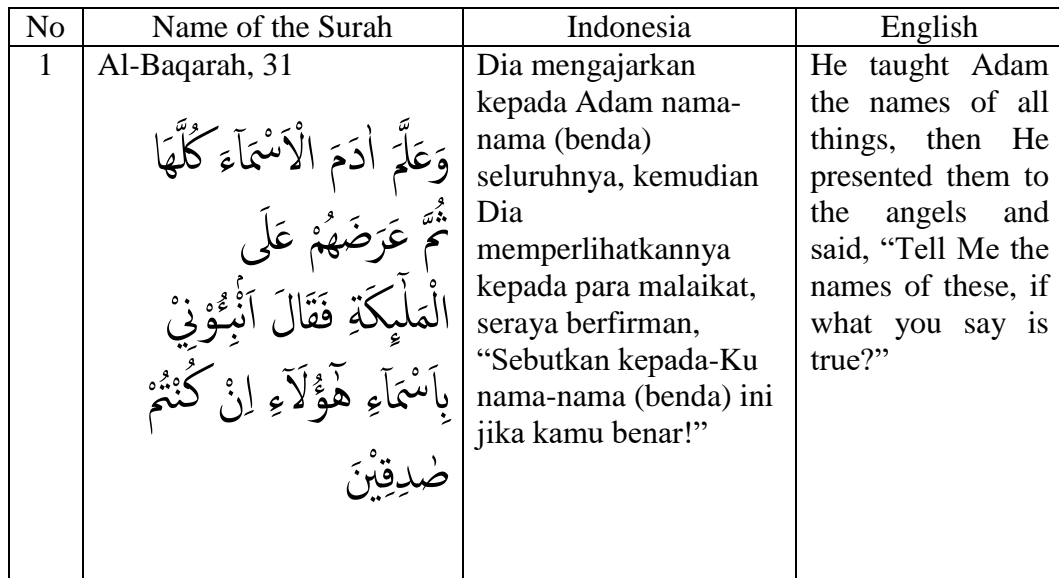 No Name of the Surah Indonesia English
1 Al-Baqarah, 31
وَعَلَّمَ اٰدَمَ الْاَسْمَاۤءَ كُلَّهَا
ثُمَّ عَرَضَهُمْ عَلَى
الْمَلٰۤىِٕكَةِ فَقَالَ اَنْۢبِـُٔوْنِيْ
بِاَسْمَاۤءِ هٰٓؤُلَاۤءِ اِنْ كُنْتُمْ
صٰدِقِيْنَ
Dia mengajarkan
kepada Adam nama-
nama (benda)
seluruhnya, kemudian
Dia
memperlihatkannya
kepada para malaikat,
seraya berfirman,
“Sebutkan kepada-Ku
nama-nama (benda) ini
jika kamu benar!”
He taught Adam
the names of all
things, then He
presented them to
the angels and
said, “Tell Me the
names of these, if
what you say is
true?”